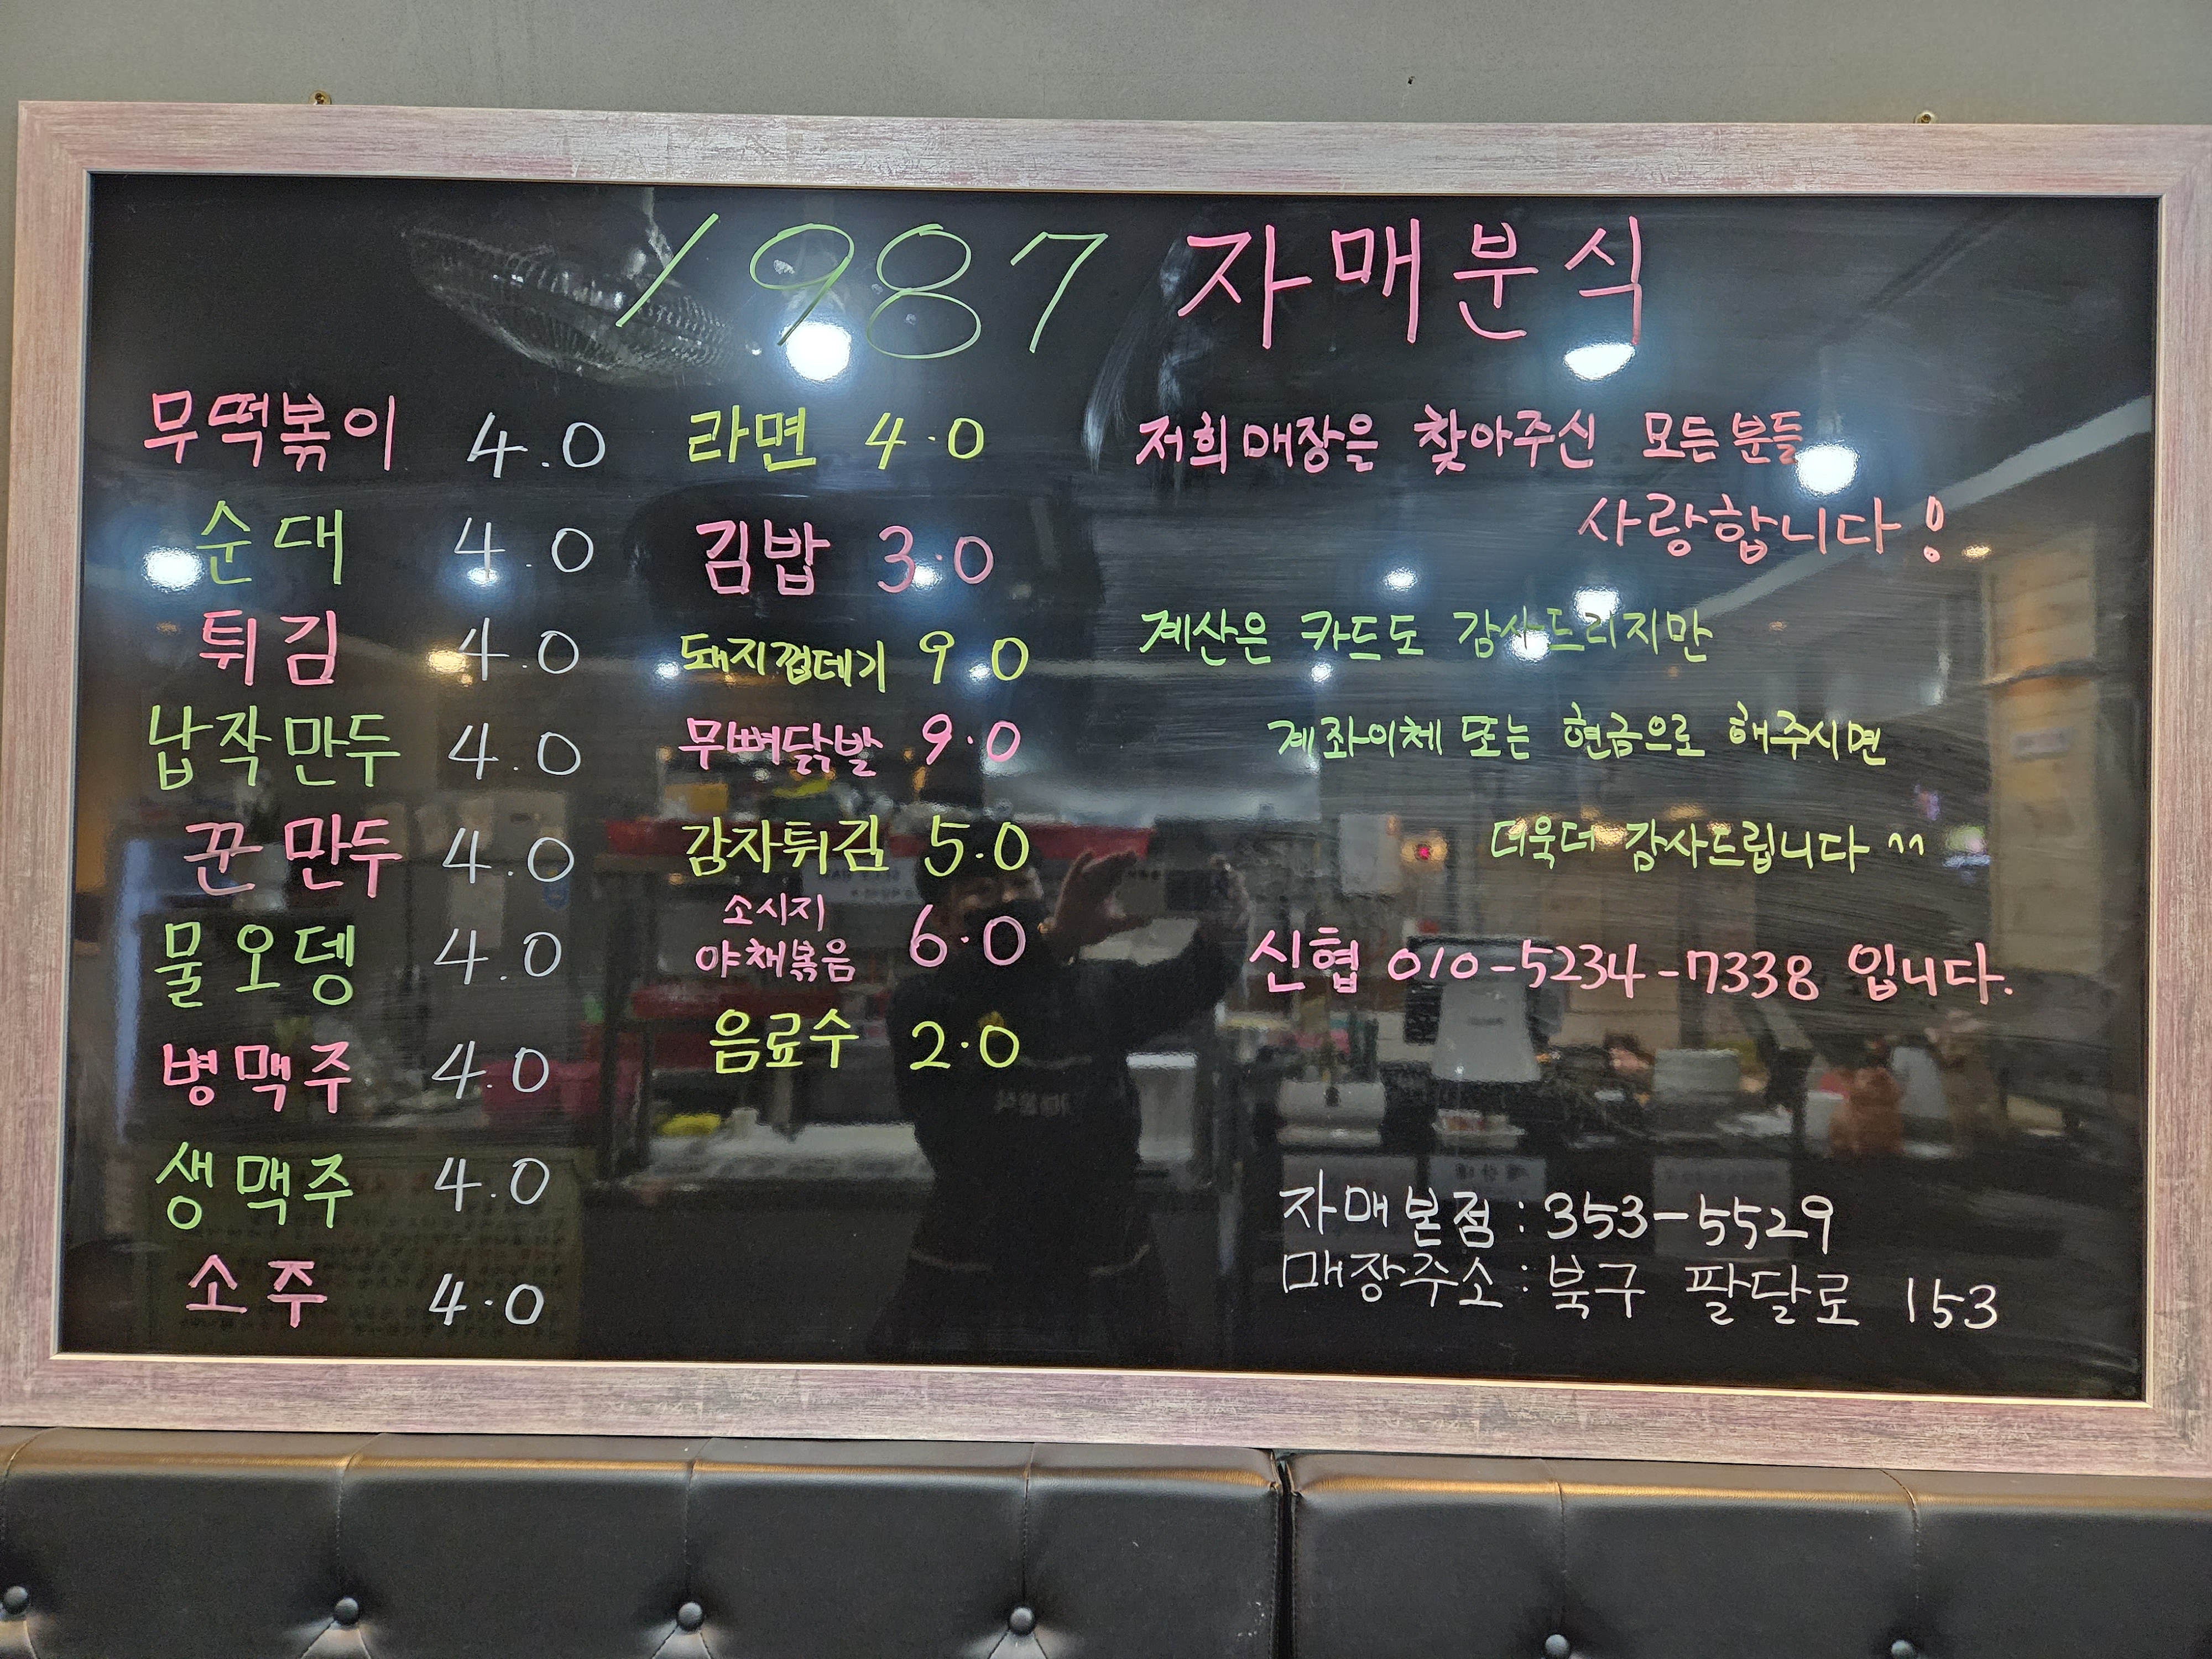 1987 자매분식
무떡볶이 4.0
순대 4.0
튀김 4.0
납작만두 4.0
꾼만두 4.0
물오뎅 4.0
병맥주 4.0
생맥주 4.0
소주 4.0
라면 4.0
김밥 3.0
돼지껍데기 9.0
무뼈닭발 9.0
감자튀김 5.0
소시지
야채볶음 6.0
음료수 2.0
저희매장은 찾아주신 모든분들
사랑합니다!
계산은 카드도 감사드리지만
계좌이체 또는 현금으로 해주시면
더욱더 감사드립니다 ^^
신협 010-5234-7338 입니다.
자매본점:353-5529
매장주소:북구 팔달로 153